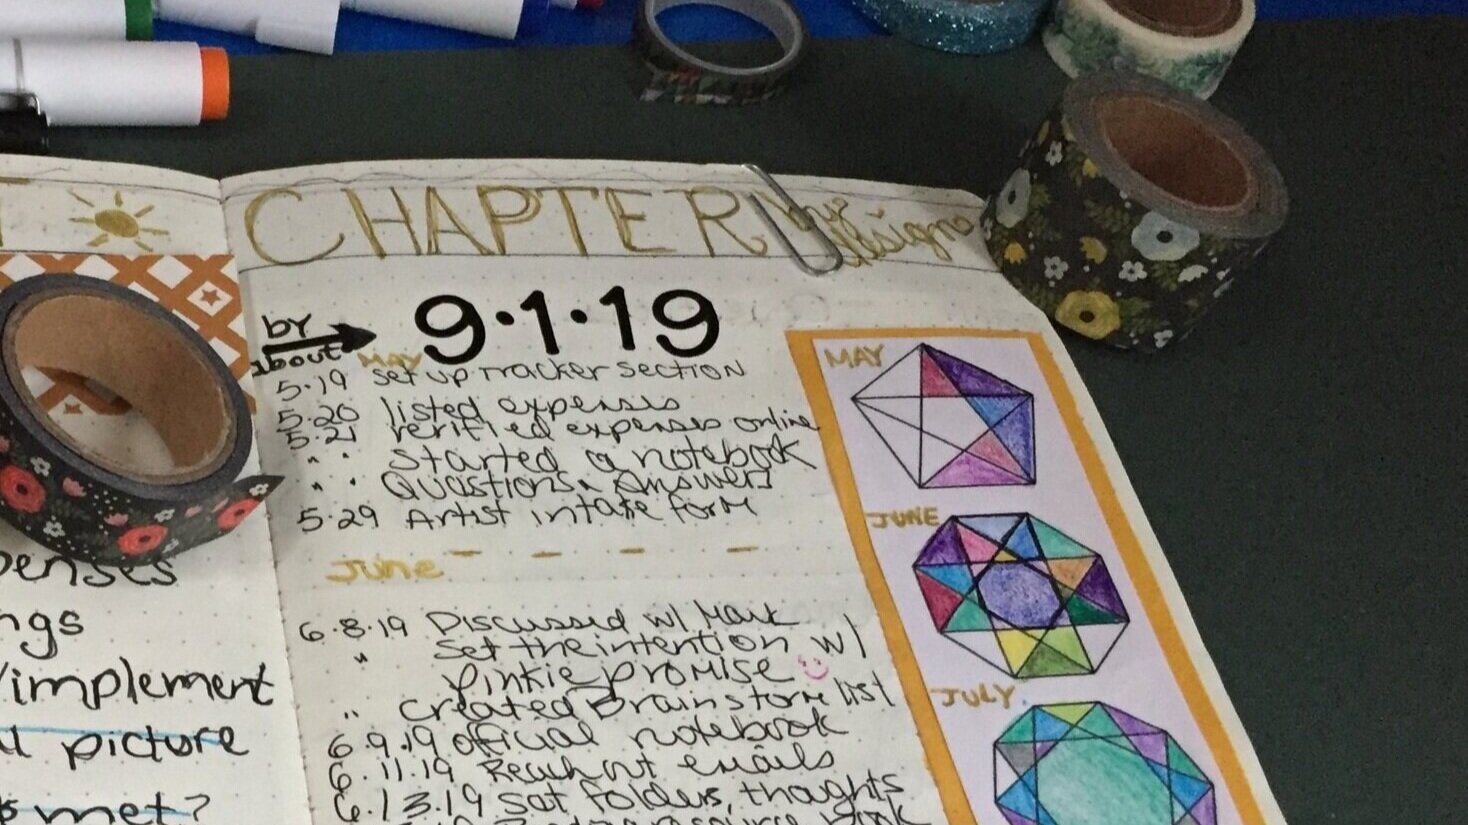 CHAPTER by design
by about → 9·1·19
MAY
5·19 set up tracker section
5·20 listed expenses
5·21 verified expenses online
" " started a notebook
" " Quastions & Answers
5·29 Artist intake form
June
6·8·19 Discussed w/ Mark
" set the intention w/
pinkie promise
" created brainstorm list
6·9·19 official notebook
6·11·19 Reach out emails
6·13·19 Set folders, thoughts
MAY
JUNE
JULY
penses
ngs
/implement
picture
met?